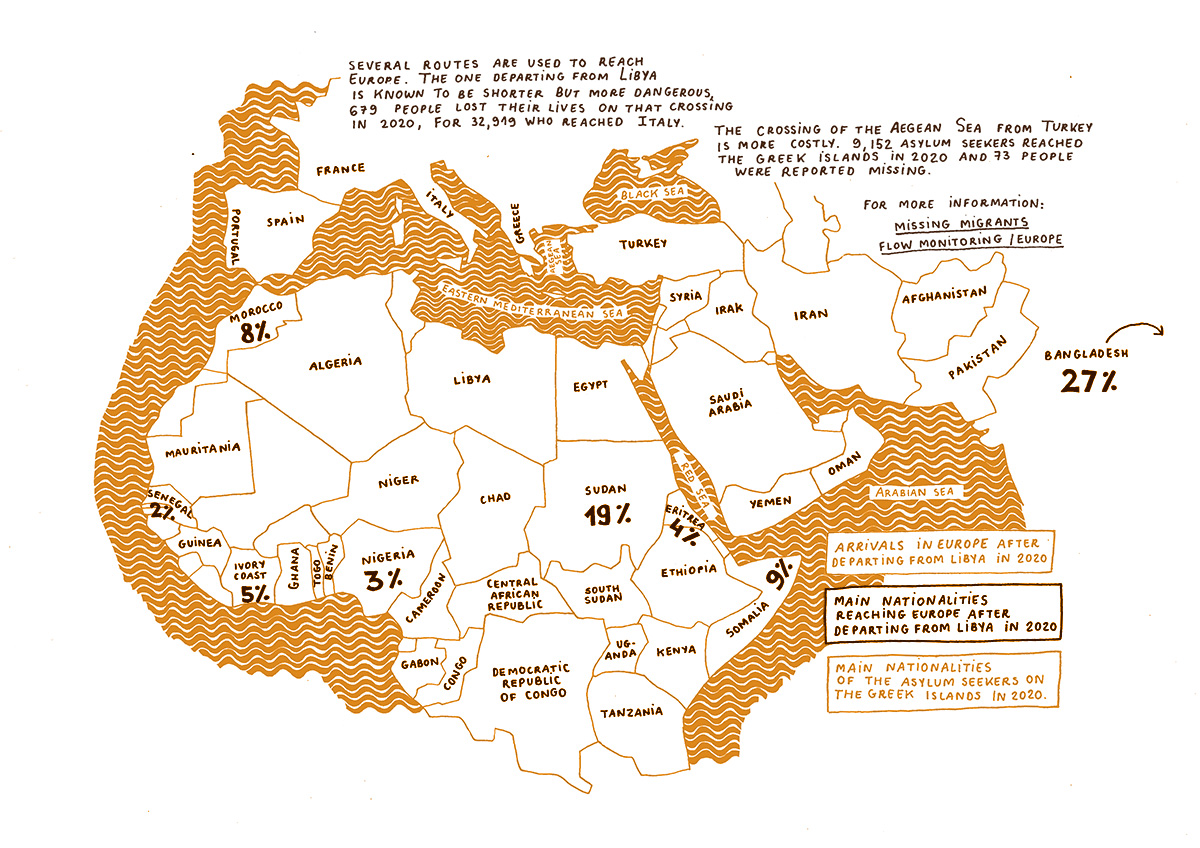 SEVERAL ROUTES ARE USED TO REACH
EUROPE. THE ONE DEPARTING FROM LIBYA
IS KNOWN TO BE SHORTER BUT MORE DANGEROUS,
679 PEOPLE LOST THEIR LIVES ON THAT CROSSING
IN 2020, FOR 32,919 WHO REACHED ITALY.
THE CROSSING OF THE AEGEAN SEA FROM TURKEY
IS MORE COSTLY. 9,152 ASYLUM SEEKERS REACHED
THE GREEK ISLANDS IN 2020 AND 73 PEOPLE
WERE REPORTED MISSING.
FOR MORE INFORMATION:
MISSING MIGRANTS
FLOW MONITORING / EUROPE
FRANCE
ITALY
BLACK SEA
PORTUGAL
SPAIN
GREECE
AEGEAN
SEA
TURKEY
EASTERN MEDITERRANEAN SEA
SYRIA
IRAK
IRAN
AFGHANISTAN
PAKISTAN
BANGLADESH
27%
MOROCCO
8%
ALGERIA
LIBYA
EGYPT
SAUDI
ARABIA
MAURITANIA
NIGER
CHAD
SUDAN
19%
RED SEA
YEMEN
OMAN
ARABIAN SEA
SENEGAL
2%
GUINEA
IVORY
COAST
5%
GHANA
TOGO
BENIN
NIGERIA
3%
CAMEROON
CENTRAL
AFRICAN
REPUBLIC
SOUTH
SUDAN
ERITREA
4%
ETHIOPIA
SOMALIA
9%
GABON
CONGO
DEMOCRATIC
REPUBLIC
OF CONGO
UG-
ANDA
KENYA
TANZANIA
ARRIVALS IN EUROPE AFTER
DEPARTING FROM LIBYA IN 2020
MAIN NATIONALITIES
REACHING EUROPE AFTER
DEPARTING FROM LIBYA IN 2020
MAIN NATIONALITIES
OF THE ASYLUM SEEKERS ON
THE GREEK ISLANDS IN 2020.